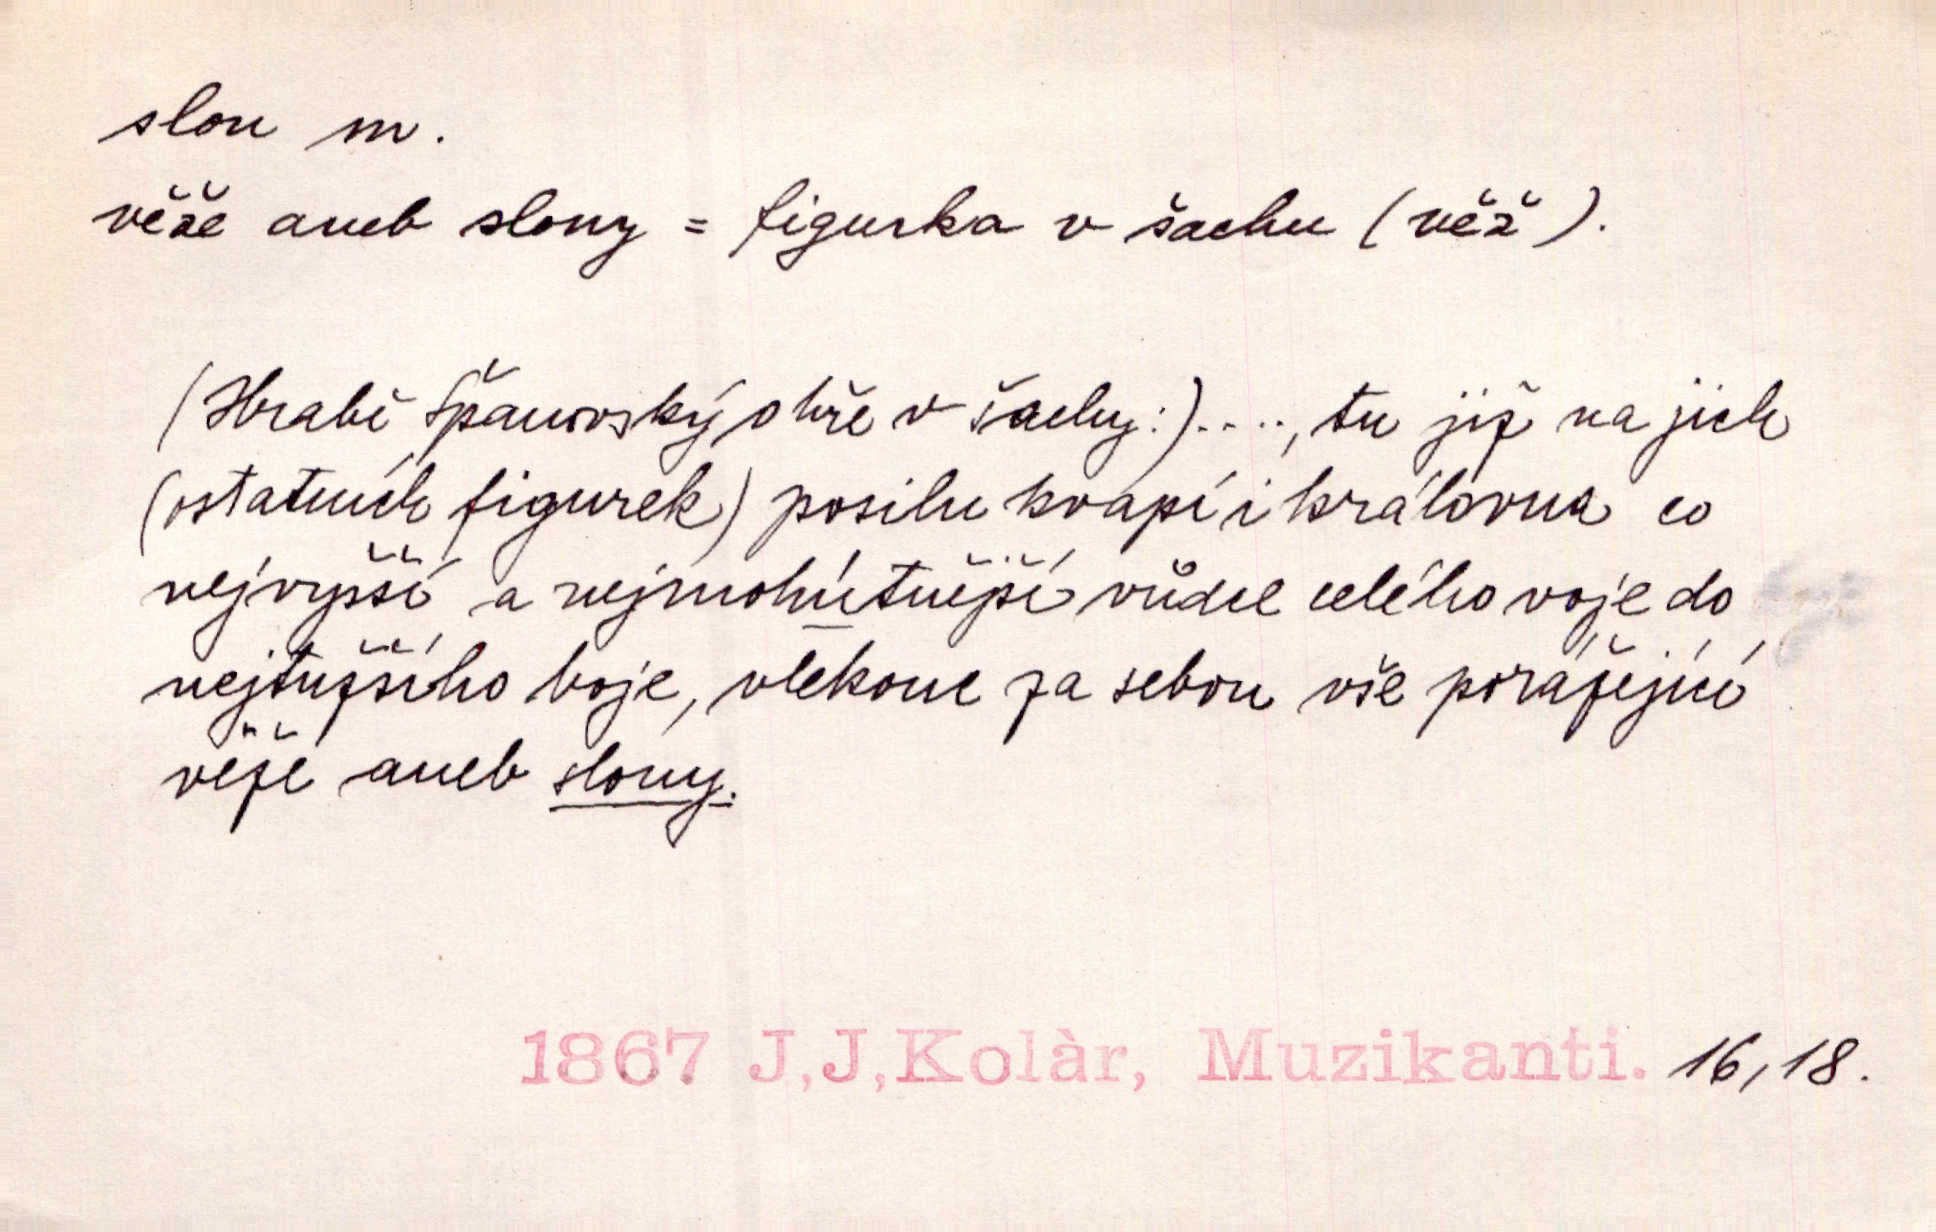 slon m.
věže aneb slony = figurka v šachu (věž).
(Hrabě Špánovský o hře v šachy:)...., tu již na jich
(ostatních figurek) posilu kvapí i královna co
nejvyšší a nejmohútnější vůdce celého voje do
nejtužšího boje, vlekouc za sebou vše porážející
věže aneb slony.
1867 J,J,Kolàr, Muzikanti. 16,18.